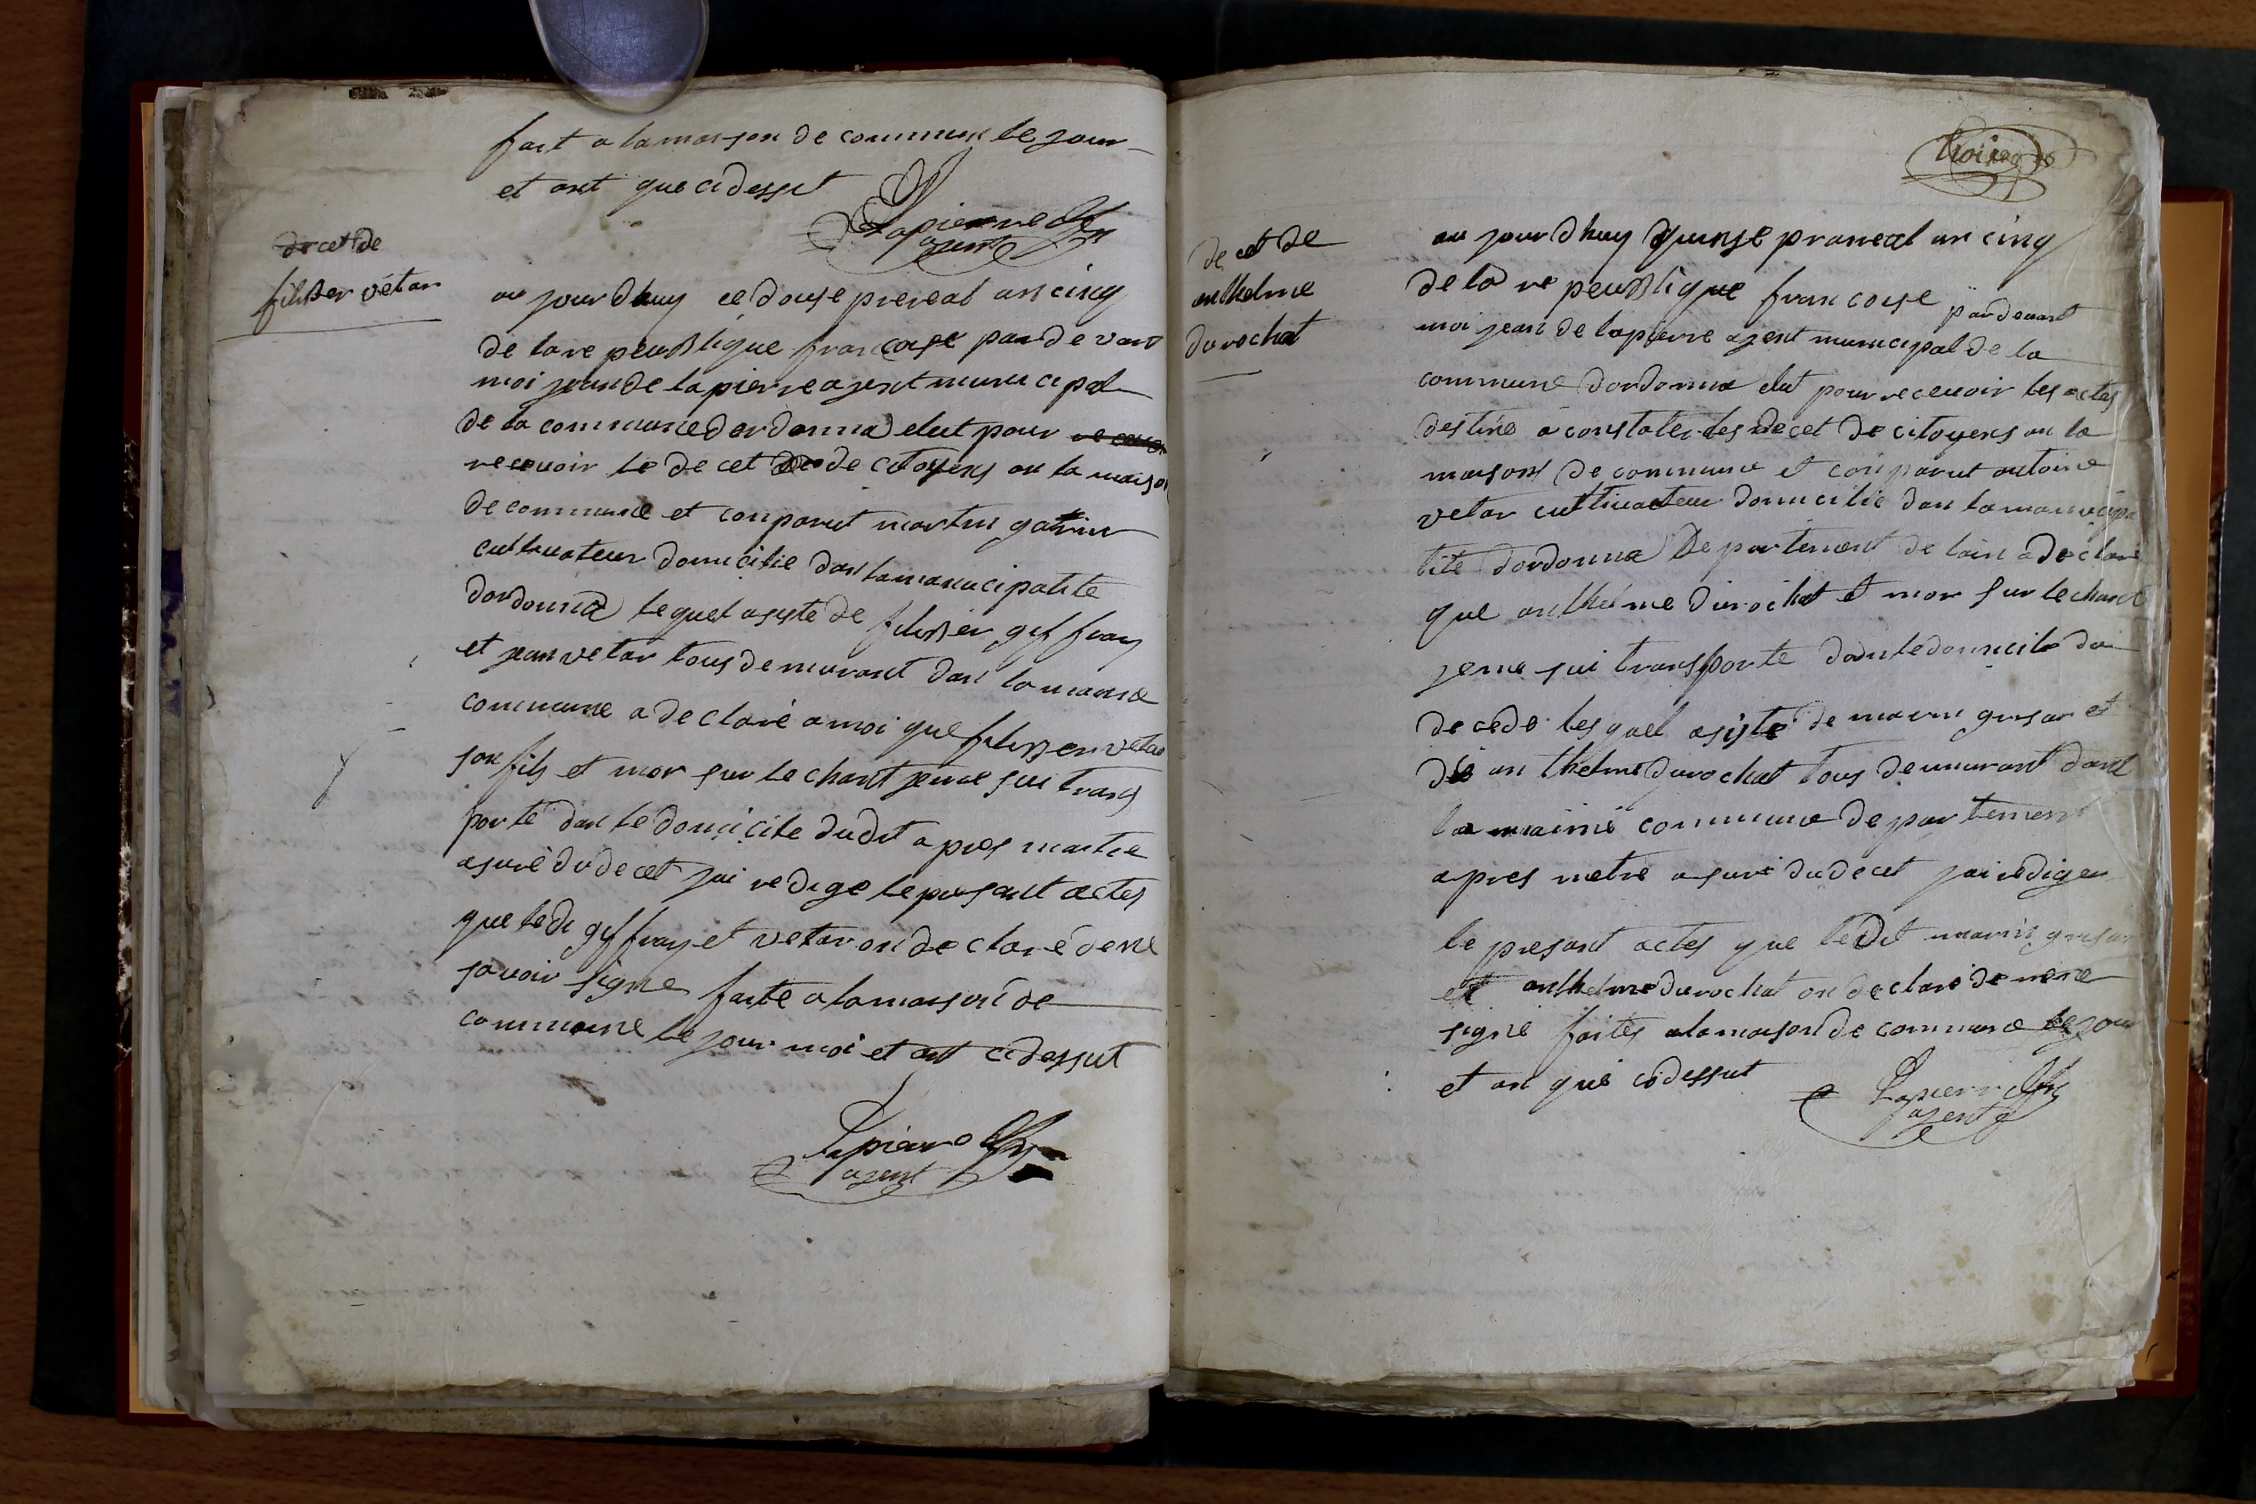 fait a lamaison de commune le jour
et ant que cidessut
Lapierre
agent
decet de
filiber vétar
au jour dhuy ce douse prereal an cinq
de lare peublique francoise par de vant
moi jean de lapierre agent municipal
de la commune dordonna elut pour
recevoir le de cet de citoyens an la maison
de commune et comparut martin
cultivateur domicilie dan lamanucipalite
dordonna lequel asiste de filiber gyffray
et jean vetar tous demurant dan la maime
commune a declaré a moi que filiber vetar
son fils et mor sur le chant jeme sui trans
porté dan le domicile dudit apres maitre
asuré du decet jai redige le presant actes
que ledi gyffray et vetar on declaré de ne
savoir signe faite a lamaison de
commune le jour moi et ant cidessut
Lapierre
agent
trois
de cet de
anthelme
durochat
au jour dhuy quinse prareal an cinq
de la re peublique francoise pardevant
moi jean de lapierre agent municipal de la
commune dordonna elut pour recevoir les actes
destiné a constater les decet de citoyens an la
maison de commune et comparut antoine
vetar cultivateur domicilie dan lamanucipa
lité dordonna departement de lain a declaré
que anthelme durochat et mor sur le chant
jeme sui transporte dan le domicile du
decede lesquel asiste de marin grisar et
de anthelme durochat tous demurant dant
la maime commune departement
apres metre asuré du decet jai rediger
le presant actes que ledit marin grisar
et anthelme durochat on declaré de nene
signe faites alamaison de commune le jour
et an que cidessut
Lapierre
agent